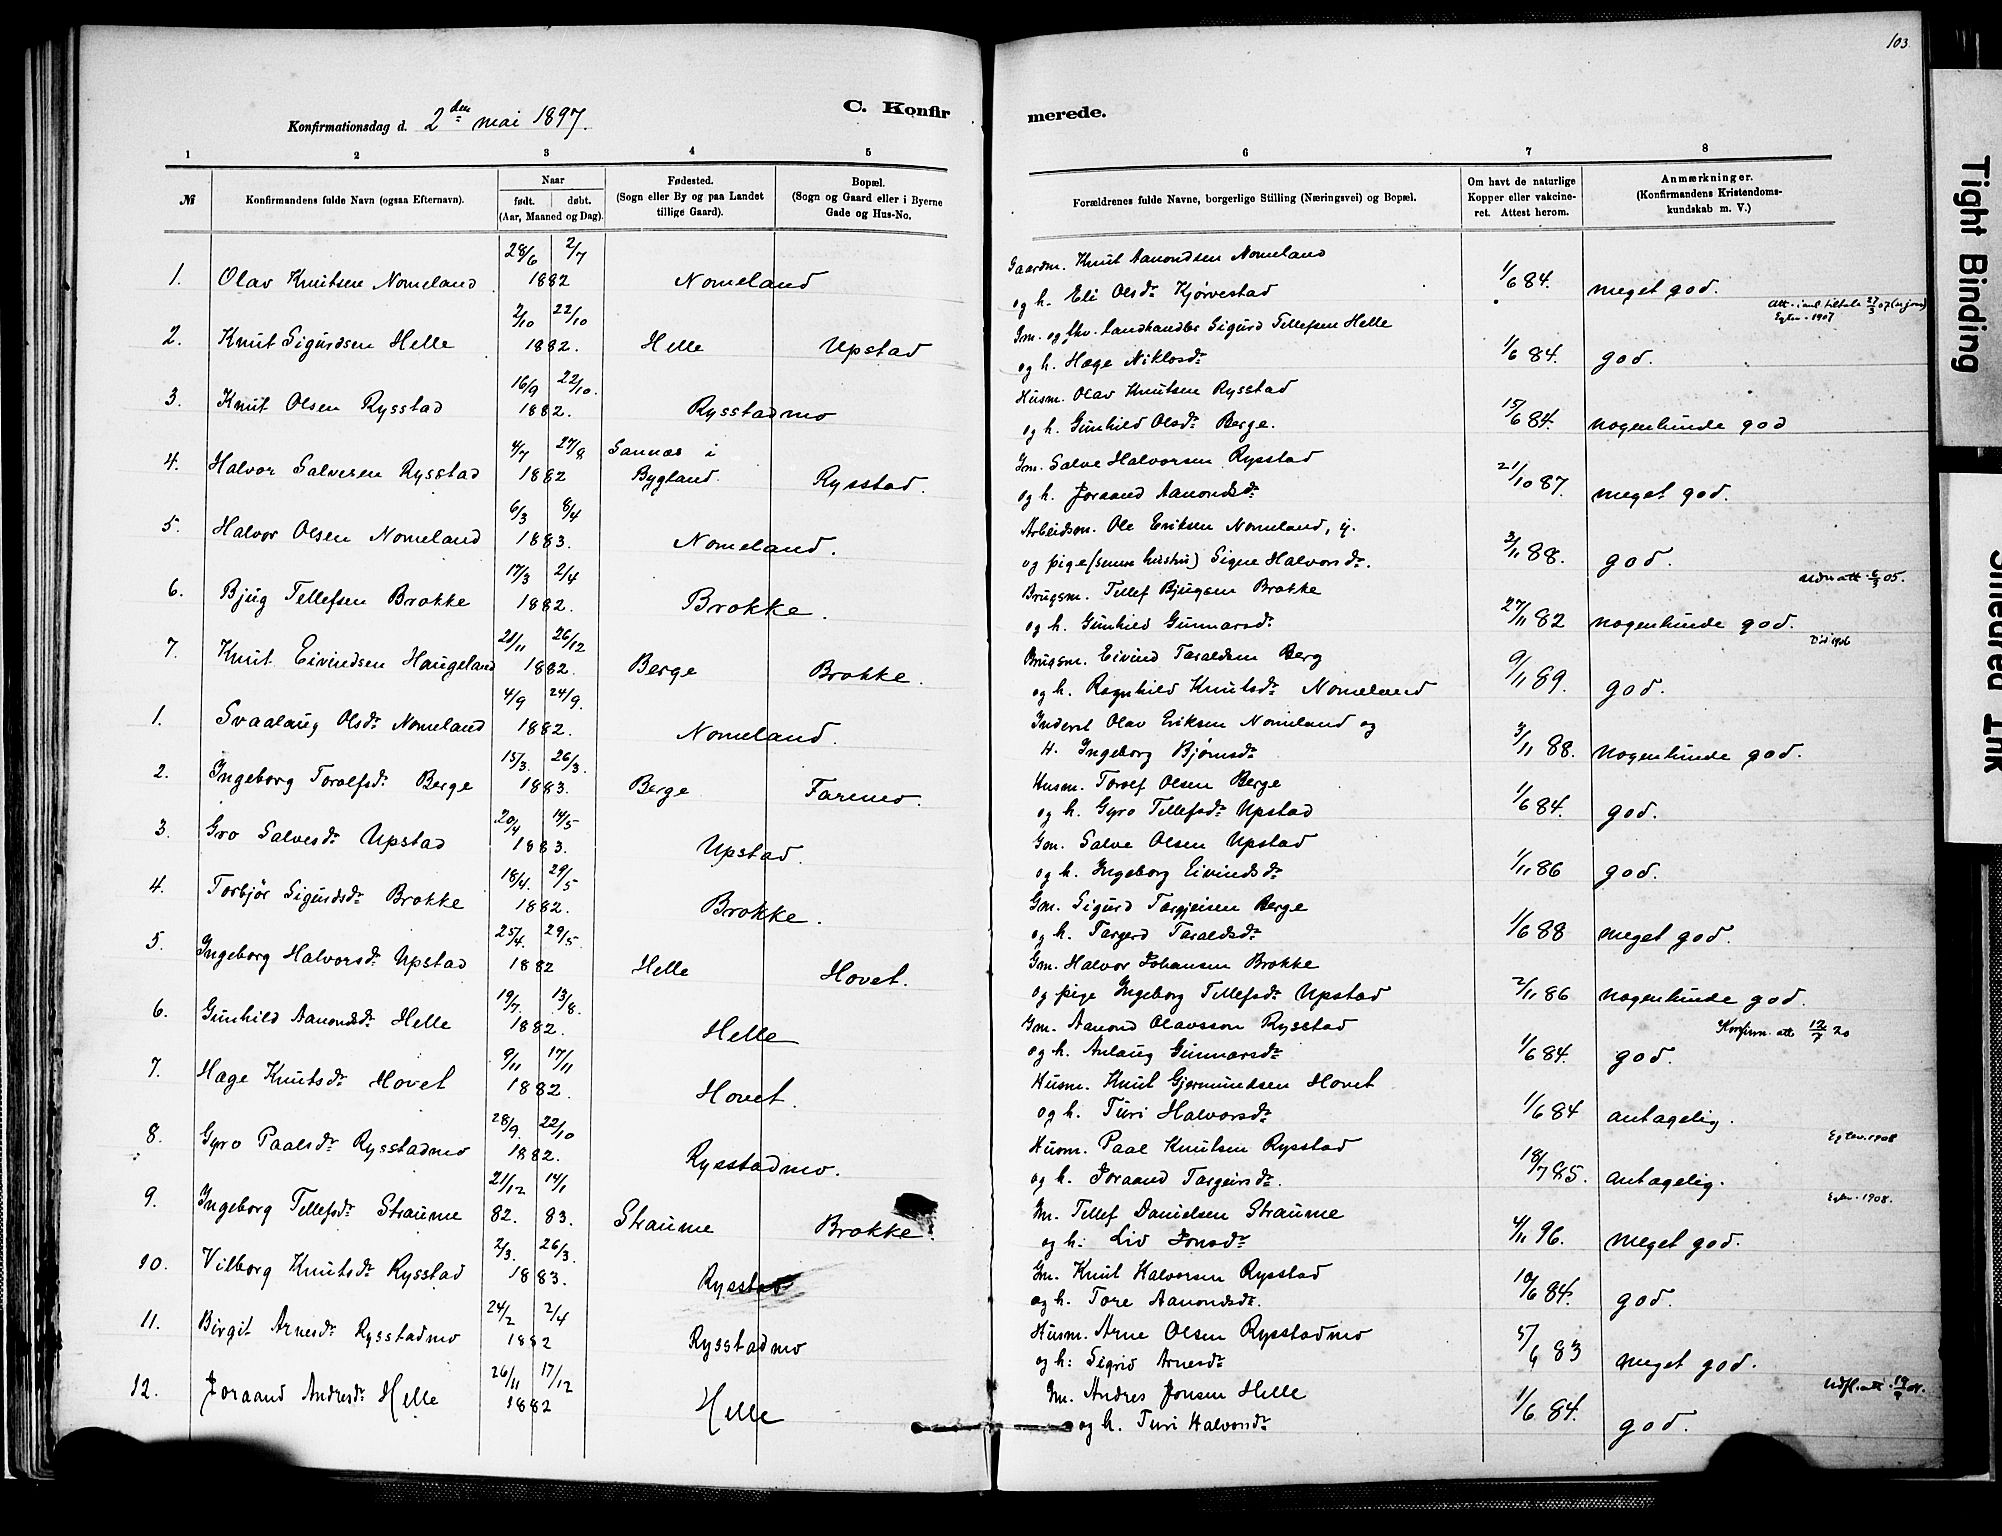 103
Konfirmationsdag d. 2den mai 1897.
C. Konfirmerede.
1 2 3 4 5 6 7 8
№ Konfirmandens fulde Navn (ogsaa Efternavn). Naar født. døbt. (Aar, Maaned og Dag). Fødested. (Sogn eller By og paa Landet tillige Gaard). Bopæl. (Sogn og Gaard eller i Byerne Gade og Hus-No. Forældrenes fulde Navne, borgerlige Stilling (Næringsvei) og Bopæl. Om havt de naturlige Kopper eller vakcineret. Attest herom. Anmærkninger. (Konfirmandens Kristendomskundskab m. V.)
28/6 2/7 Gaardm. Knut Aanondsen Nomeland
1. Olav Knutsen Nomeland 1882 Nomeland og h. Eli Olsdr Kjørvestad 1/6 84. meget god.
2/10 22/10 Gm. og fhv. landhandler Sigurd Tellefsen Helle
Egtev. 1907
2. Knut Sigurdsen Helle 1882. Helle Upstad og h. Hæge Niklosdr 1/6 84. god.
16/9 22/10. Husm. Olav Knutsen Rysstad
3. Knut Olsen Rysstad 1882. Rysstadmo og h. Gunhild Olsdr Berge. 15/6 84. nogenlunde god
4/7 27/8 Sannæs i Gm. Salve Halvorsen Rysstad
4. Halvor Salvesen Rysstad 1882 Bygland. Rysstad. og h. Joraand Aanondsdr 21/10 87. meget god.
6/3 8/4 Arbeidsm. Ole Eriksen Nomeland, y.
5. Halvor Olsen Nomeland 1883. Nomeland. og pige (senere hustru) Signe Halvorsdr. 3/11 88. god.
17/3 2/4 Brugsm. Tellef Bjugsen Brokke
6. Bjug Tellefsen Brokke 1882. Brokke. og h. Gunhild Gunnarsdr 27/11 82 nogenlunde god.
21/11 26/12 Brugsm. Eivind Taraldsen Berg
7. Knut Eivindsen Haugeland 1882. Berge Brokke. og h. Ragnhild Knutsdr Nomeland 9/11 89. god.
4/9 24/9. Inderst Olav Eriksen Nomeland og
1. Svaalaug Olsdr Nomeland 1882. Nomeland. H. Ingeborg Bjørnsdr 3/11 88. nogenlunde god.
15/3. 26/3. Husm. Torolf Olsen Berge
2. Ingeborg Torolfsdr Berge 1883. Berge Faremo. og h. Gyro Tellefsdr Upstad 1/6 84. god.
20/4 14/5 Gm. Salve Olsen Upstad
3. Gro Salvesdr Upstad 1883. Upstad. og h. Ingeborg Eivindsdr 1/11 86 god.
18/4. 29/5 Gm. Sigurd Targjeisen Berge
4. Torbjør Sigurdsdr Brokke 1882. Brokke. og h. Targerd Taraldsdr 1/6 88 meget god.
25/4. 29/5. Gm. Halvor Johansen Brokke
5. Ingeborg Halvorsdr Upstad 1882 Helle Hovet. og pige Ingeborg Tellefsdr Upstad 2/11 86 nogenlunde god.
19/7. 13/8. Gm. Aanond Olavsson Rysstad Konfirm. att. 12/7 20
6. Gunhild Aanondsdr Helle 1882. Helle og h. Anlaug Gunnarsdr 1/6 84. god.
9/11 17/11 Husm. Knut Gjermundsen Hovet
7. Hæge Knutsdr Hovet 1882. Hovet. og h. Turi Halvorsdr 1/6 84 antagelig.
28/9. 22/10 Husm. Paal Knutsen Rysstad Egtev. 1908
8. Gyro Paalsdr Rysstadmo 1882. Rysstadmo. og h. Joraand Targeirsdr. 18/7 85. antagelig.
21/12 14/1 Gm. Tellef Danielsen Straume Egtev. 1908.
9. Ingeborg Tellefsdr Straume 82. 83. Straume Brokke. og h: Liv Jonsdr 4/11 96. meget god.
2/3. 26/3. Gm. Knut Halvorsen Rysstad
10. Vilborg Knutsdr Rysstad 1883. Rysstad og h. Tore Aanondsdr. 10/6 84. god.
24/2 2/4 Husm. Arne Olsen Rysstadmo
11. Birgit Arnesdr Rysstadmo 1882 Rysstadmo og h: Sigrid Arnesdr 5/6 83 meget god.
26/11 17/12 Gm. Andres Jonsen Helle
12. Joraand Andresdr Helle 1882 Helle og h. Turi Halvorsdr 1/6 84. god.
Tight Binding